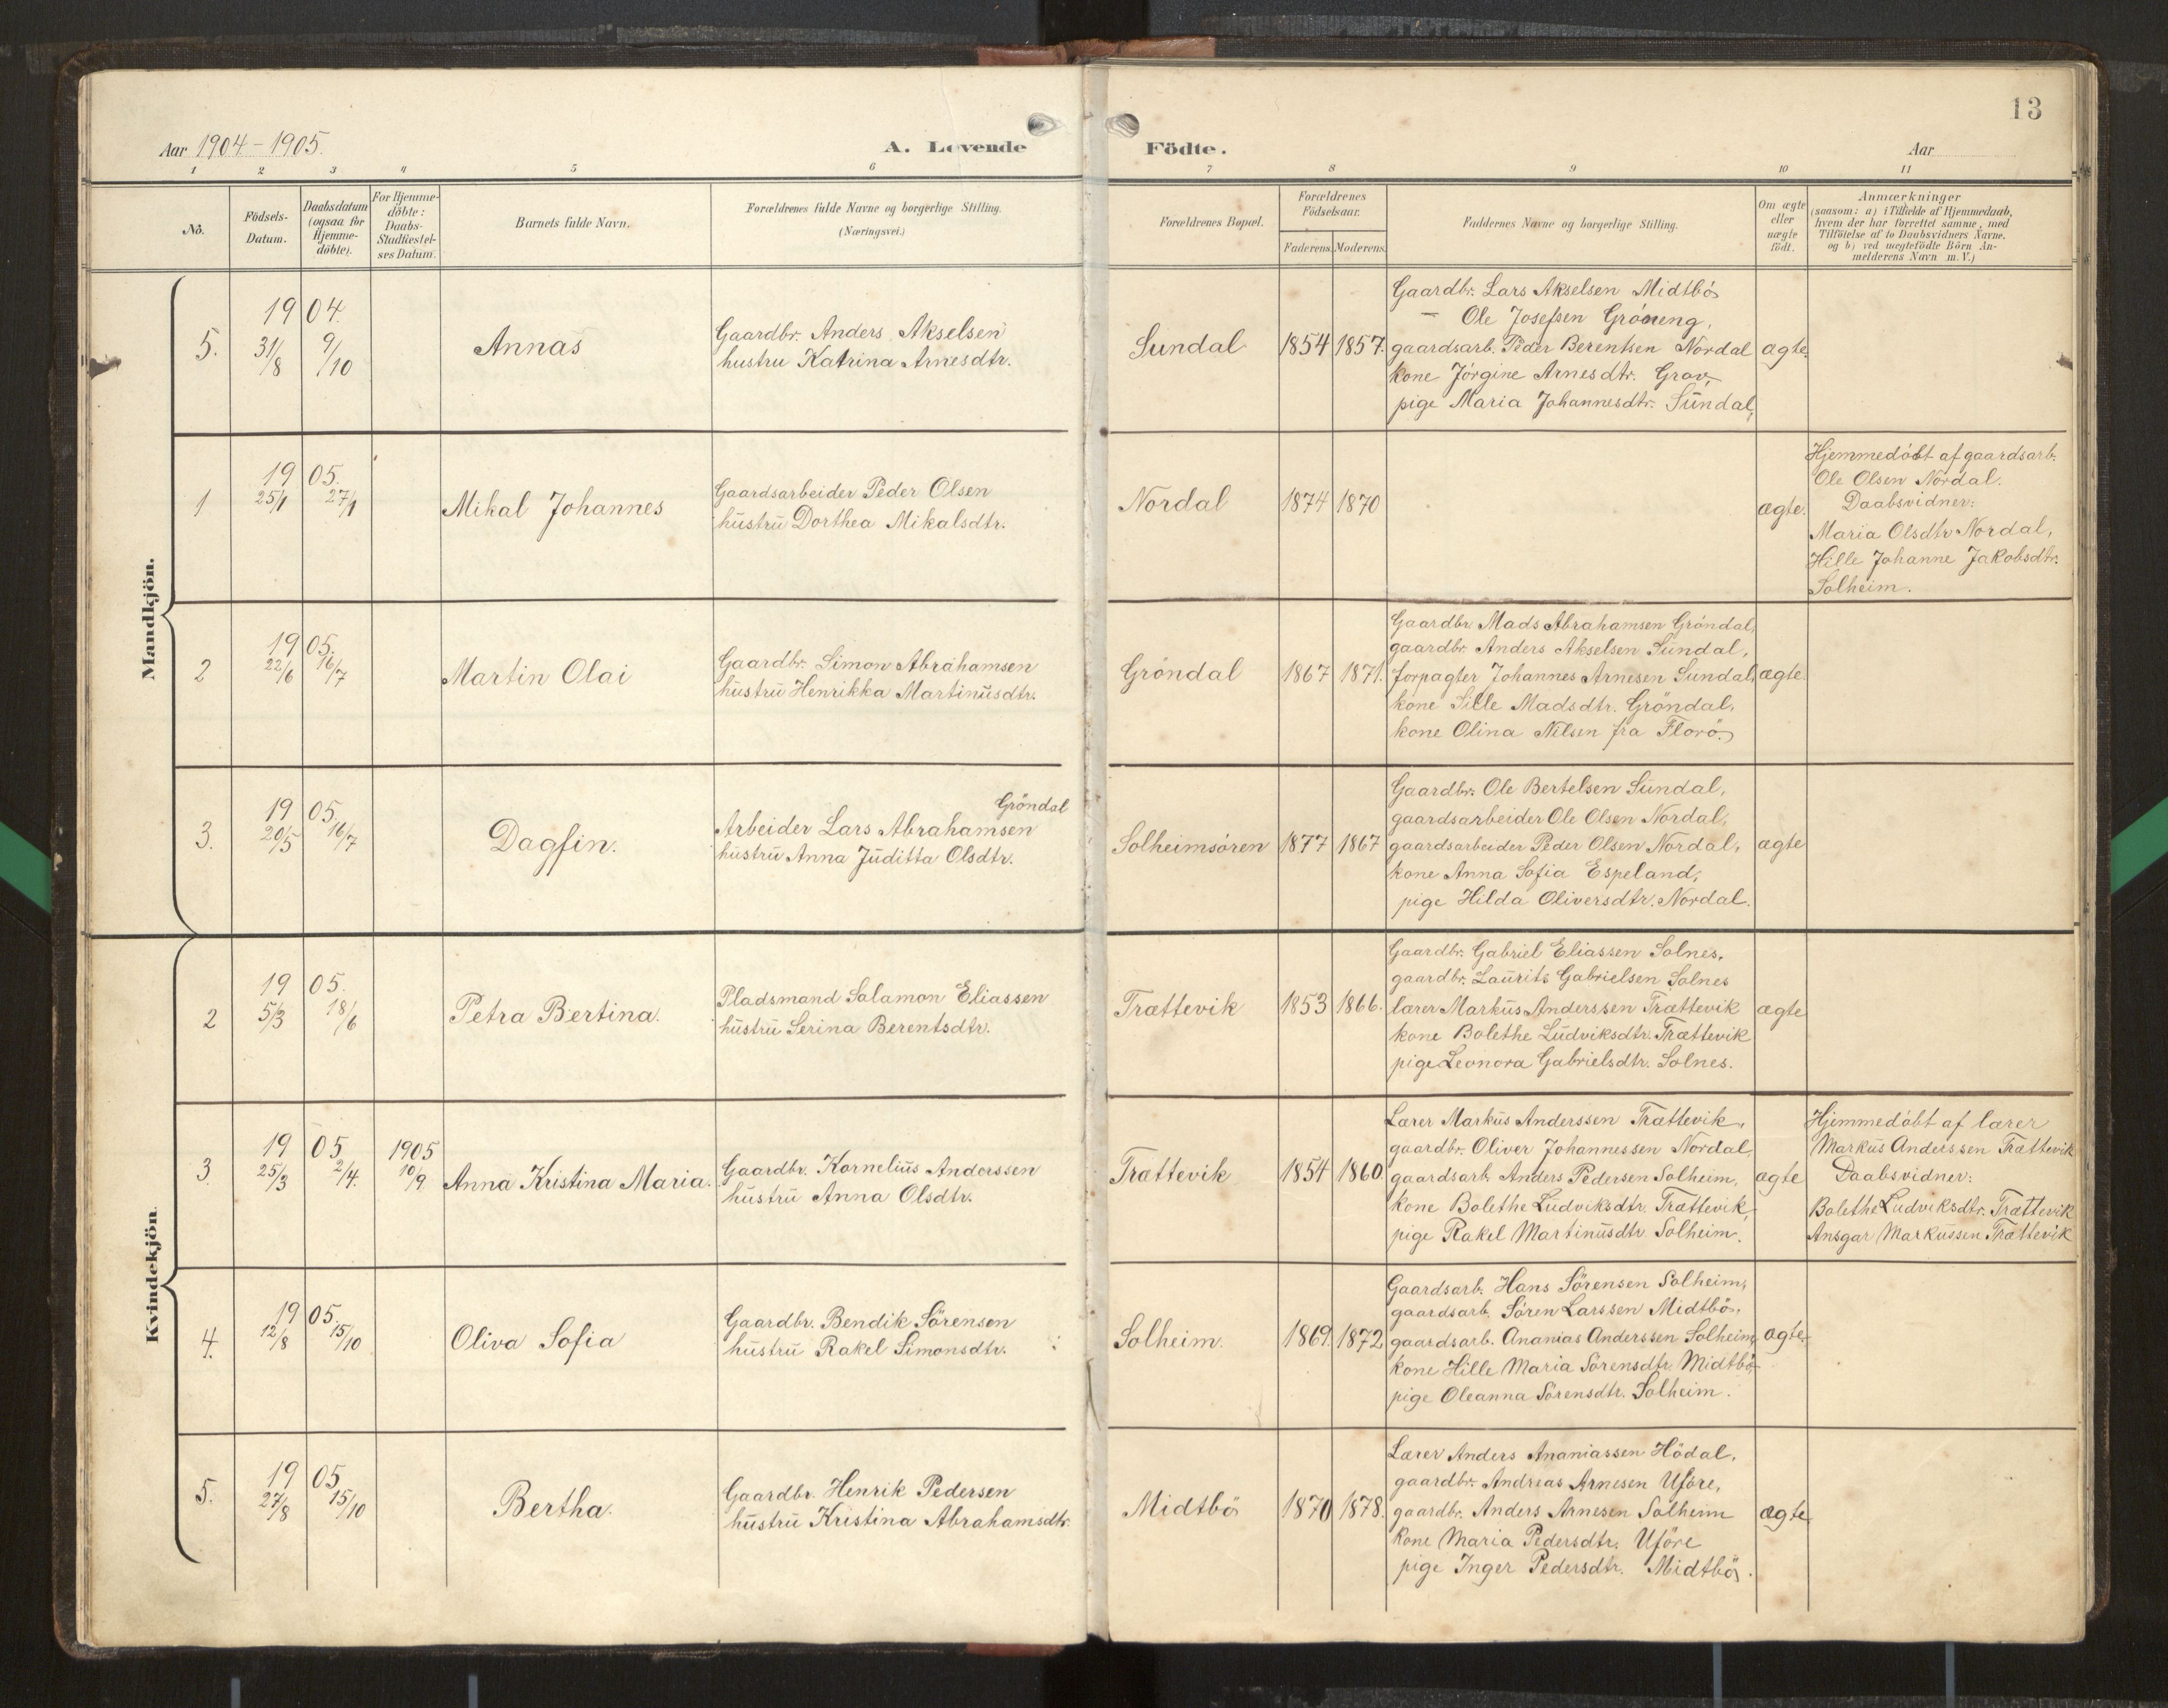 13
Aar 1904-1905.
A. Levende Födte.
Aar
1 2 3 4 5 6 7 8 9 10 11
Nô.
Födsels-
Datum.
Daabsdatum
(ogsaa for
Hjemme-
döbte).
For Hjemme-
döbte:
Daabs-
Stadfæstel-
ses Datum.
Barnets fulde Navn.
Forældrenes fulde Navne og borgerlige Stilling.
(Næringsvei.)
Forældrenes Bopæl.
Forældrenes
Födselsaar.
Faderens. Moderens.
Faddernes Navne og borgerlige Stilling.
Om ægte
eller
uægte
födt.
Anmærkninger
(saasom: a) i Tilfælde af Hjemmedaab,
hvem der har forrettet samme, med
Tilföielse af to Daabsvidners Navne.
og b) ved uægtefödte Börn An-
melderens Navn m.V.)
Mandkjön.
5.
1904.
31/8 9/10
Annas
Gaardbr. Anders Akselsen
hustru Katrina Arnesdtr.
Sundal
1854 1857.
Gaardbr. Lars Akselsen Midtbö
— Ole Josefsen Gröneng,
gaardsarb. Peder Berentsen Nordal
kone Jörgine Arnesdtr. Grov,
pige Maria Johannesdtr. Sundal,
ægte.
1
1905.
25/1 27/1
Mikal Johannes
Gaardsarbeider Peder Olsen
hustru Dorthea Mikalsdtr.
Nordal
1874 1870
ægte.
Hjemmedöbt af gaardsarb.
Ole Olsen Nordal.
Daabsvidner:
Maria Olsdtr Nordal,
Hille Johanne Jakobsdtr.
Solheim.
2
1905.
22/6 16/7
Martin Olai
Gaardbr. Simon Abrahamsen
hustru Henrikka Martinusdtr.
Gröndal
1867 1871.
Gaardbr. Mads Abrahamsen Gröndal,
gaardbr. Anders Akselsen Sundal,
forpagter Johannes Arnesen Sundal,
kone Sille Madsdtr. Gröndal,
kone Olina Nilsen fra Florö.
ægte.
3.
1905.
20/5 16/7
Dagfin.
Gröndal
Arbeider Lars Abrahamsen
hustru Anna Juditta Olsdtr.
Solheimsören
1877 1867
Gaardbr. Ole Bertelsen Sundal,
gaardsarbeider Ole Olsen Nordal,
gaardsarbeider Peder Olsen Nordal,
kone Anna Sofia Espeland,
pige Hilda Oliversdtr. Nordal.
ægte
Kvindekjön.
2
1905.
5/3 18/6
Petra Bertina.
Pladsmand Salamon Eliassen
hustru Serina Berentsdtr.
Trættevik
1853 1866.
Gaardbr. Gabriel Eliassen Solnes.
gaardbr. Laurits Gabrielsen Solnes
lærer Markus Anderssen Trættevik
kone Bolethe Ludviksdtr. Trættevik
pige Leonora Gabrielsdtr. Solnes.
ægte
3.
1905 1905
25/3 2/4. 10/9
Anna Kristina Maria.
Gaardbr. Kornelius Anderssen
hustru Anna Olsdtr.
Trættevik
1854 1860
Lærer Markus Anderssen Trættevik,
gaardbr. Oliver Johannessen Nordal,
gaardsarb. Anders Pedersen Solheim,
kone Bolethe Ludviksdtr. Trættevik,
pige Rakel Martinusdtr Solheim.
ægte
Hjemmedöbt af lærer
Markus Anderssen Trættevik
Daabsvidner:
Bolethe Ludviksdtr. Trættevik
Ansgar Markussen Trættevik
4.
1905.
12/8 15/10
Oliva Sofia
Gaardbr. Bendik Sörensen
hustru Rakel Simonsdtr.
Solheim.
1869. 1872
Gaardsarb. Hans Sörensen Solheim,
gaardsarb. Sören Larssen Midtbö,
gaardsarb. Ananias Anderssen Solheim,
kone Hille Maria Sörensdtr. Midtbö,
pige Oleanna Sörensdtr. Solheim.
ægte.
5.
1905
27/8 15/10
Bertha.
Gaardbr. Henrik Pedersen
hustru Kristina Abrahamsdtr.
Midtbö
1870 1878.
Lærer Anders Ananiassen Hödal,
gaardbr. Andreas Arnesen Uföre,
gaardbr. Anders Arnesen Solheim
kone Maria Pedersdtr. Uföre
pige Inger Pedersdtr. Midtbö.
ægte